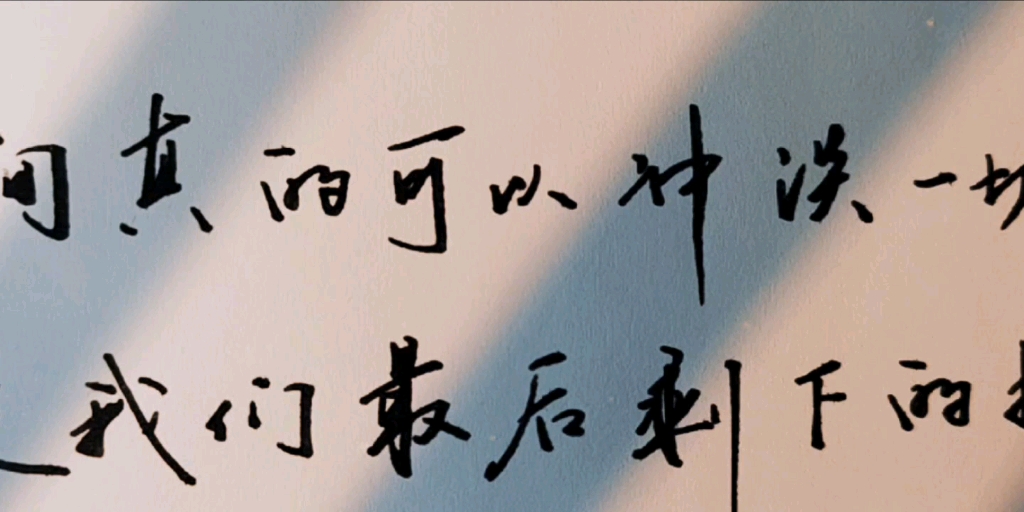 间真的可以冲淡一切
我们最后剩下的